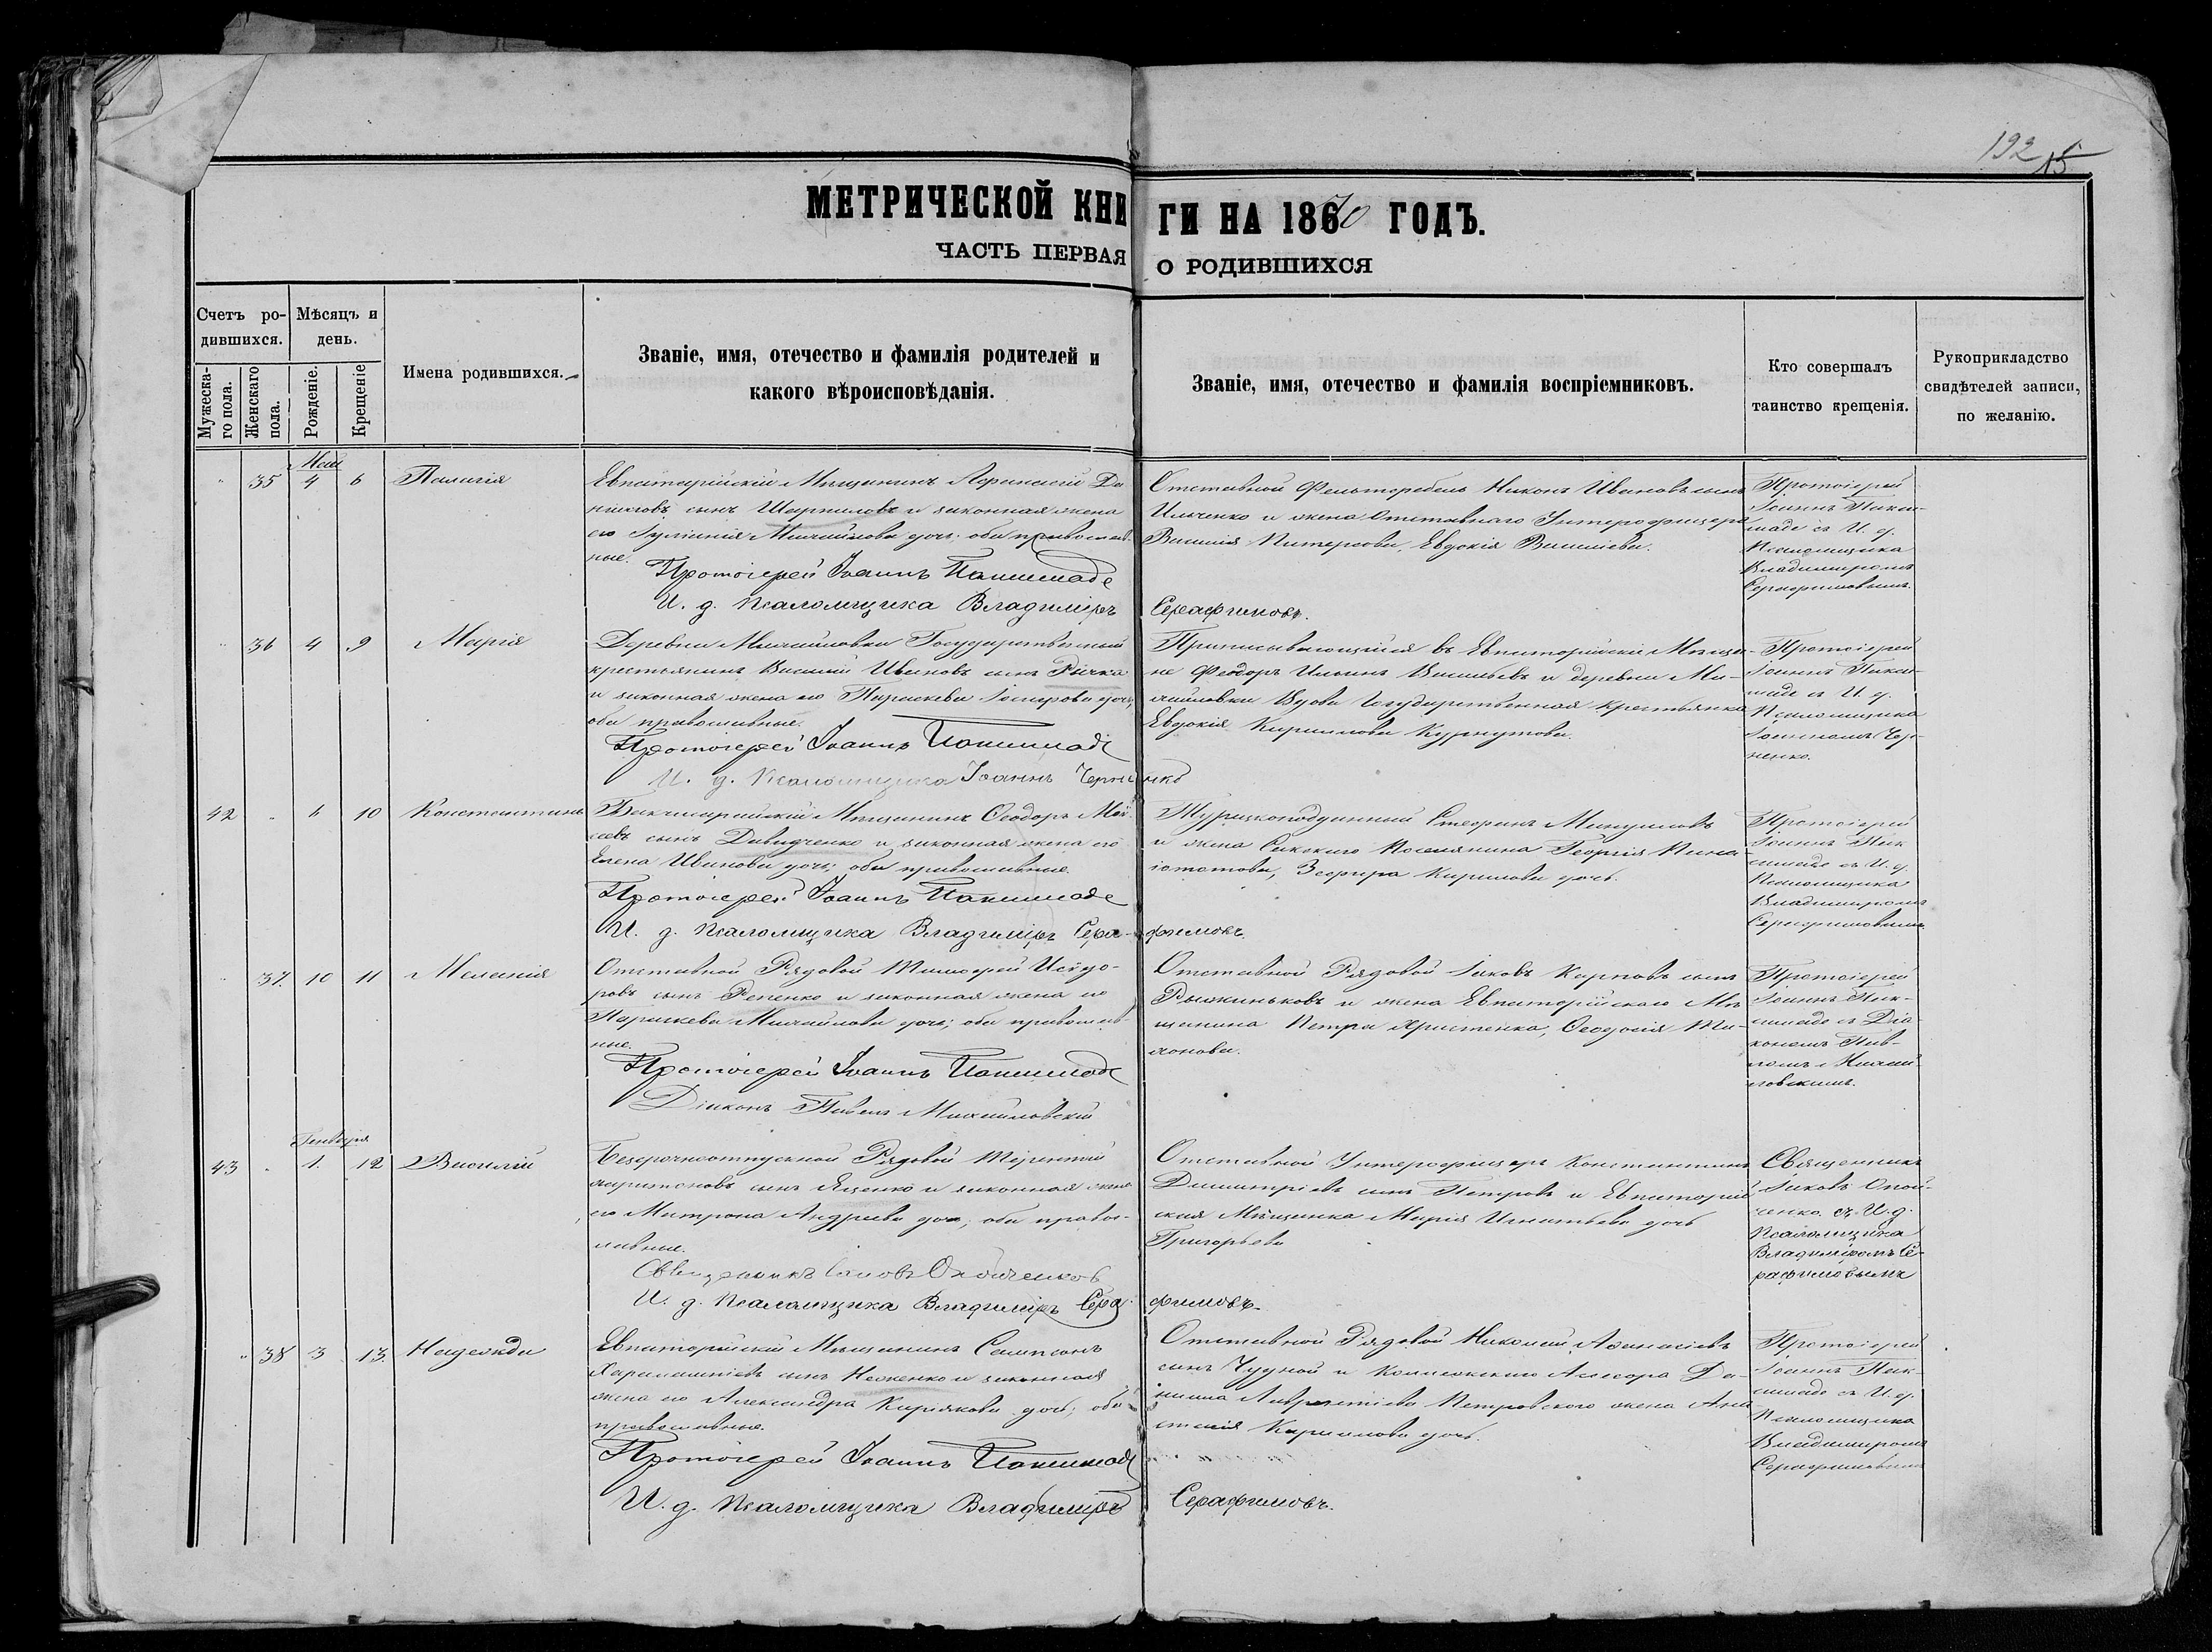 192 15
МЕТРИЧЕСКОЙ КНИГИ НА 1870 ГОДЪ.
ЧАСТЬ ПЕРВАЯ О РОДИВШИХСЯ
Счетъ ро-
дившихся.
Мужеска-
го пола.
Женскаго
пола.
Мѣсяцъ и
день.
Рожденіе.
Крещеніе
Имена родившихся.
Званіе, имя, отечество и фамилія родителей и
какого вѣроисповѣданія.
Званіе, имя, отечество и фамилія воспріемниковъ.
Кто совершалъ
таинство крещенія.
Рукоприкладство
свидѣтелей записи,
по желанію.
Май
35 4 6
Евпаторійскій Мѣщанинъ
сынъ и законная жена
его Михайлова дочь; оба православ-
ные.
Протоіерей Іоаннъ
И. д. Псаломщика Владиміръ Серафимовъ.
Отставной Фельдфебель Никонъ Ивановъ сынъ
Ильченко и жена Отставнаго Унтерофицера
Василія Евдокія Васильева.
Протоіерей
Іоаннъ
съ И. д.
Псаломщика
Владиміромъ
Серафимовымъ.
36 4 9 Марія
Деревни Михайловки Государственный
крестьянинъ Василій Ивановъ сынъ Рѣчка
и законная жена его Параскева дочь,
оба православные.
Протоіерей Іоаннъ
И. д. Псаломщика Іоаннъ Черненко
Приписывающійся въ Евпаторійскіе Мѣща-
не Феодоръ Ильинъ Васильевъ и деревни Ми-
хайловки Вдова Государственная крестьянка
Евдокія Кириллова
Протоіерей
Іоаннъ
съ И. д.
Псаломщика
Іоанномъ Чер-
ненко.
42 6 10 Константинъ
Мѣщанинъ Феодоръ Мой-
сеевъ сынъ Давидченко и законная жена его
Елена Иванова дочь; оба православные.
Протоіерей Іоаннъ
И. д. Псаломщика Владиміръ Серафимовъ.
Турецкоподданный Стефанъ
и жена Сакскаго Поселянина Георгія
Кирилова дочь.
Протоіерей
Іоаннъ
съ И. д.
Псаломщика
Владиміромъ
Серафимовымъ
37. 10 11 Меланія
Отставной Рядовой Тимофей Исидо-
ровъ сынъ Репенко и законная жена его
Параскева Михайлова дочь; оба православ-
ные.
Протоіерей Іоаннъ
Діаконъ Павелъ Михайловскій
Отставной Рядовой Іаковъ Карповъ сынъ
Рыжиньковъ и жена Евпаторійскаго Мѣ-
щанина Петра Феодосія
Протоіерей
Іоаннъ
съ Діа-
кономъ Пав-
ломъ Михай-
ловскимъ.
Генваря
43 1. 12 Василій
Безсрочноотпускной Рядовой Терентій
Харитоновъ сынъ Яценко и законная жена
его Матрона Андреева дочь; оба право-
славные.
Священникъ Іаковъ
И. д. Псаломщика Владиміръ Серафимовъ.
Отставной Унтерофицеръ Константинъ
Димитріевъ сынъ Петровъ и Евпаторій-
ская Мѣщанка Марія Игнатьева дочь
Григорьева
Священникъ
Іаковъ
съ И. д.
Псаломщика
Владиміромъ Се-
рафимовымъ
38 3 13. Надежда
Евпаторійскій Мѣщанинъ Сампсонъ
сынъ и законная
жена его Александра Кириакова дочь; оба
православные.
Протоіерей Іоаннъ
И. д. Псаломщика Владиміръ Серафимовъ.
Отставной Рядовой Николай Афанасіевъ
сынъ Чудной и Коллежскаго Асесора Да-
ніила Лаврентіева Петровскаго жена Ана-
стасія Кириллова дочь.
Протоіерей
Іоаннъ
съ И. д.
Псаломщика
Владиміромъ
Серафимовымъ